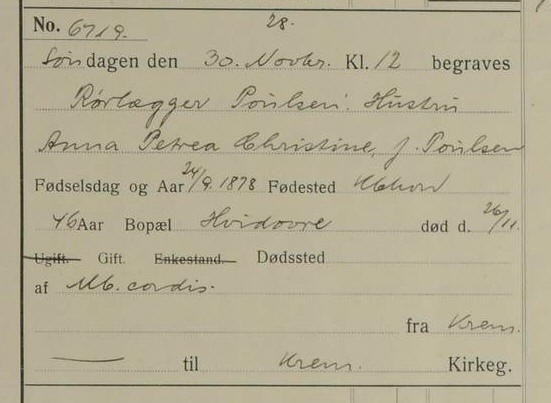 28.
No. 6719.
Søndagen den 30. Novbr. Kl. 12 begraves
Rørlægger Poulsens Hustru
Anna Petrea Christine, f. Poulsen
Fødselsdag og Aar 24/9. 1878 Fødested Kbhvn
46 Aar Bopæl Hvidovre død d. 26/11.
Ugift. Gift. Enkestand. Dødssted
af Mb. cordis.
fra Krem.
til Krem. Kirkeg.